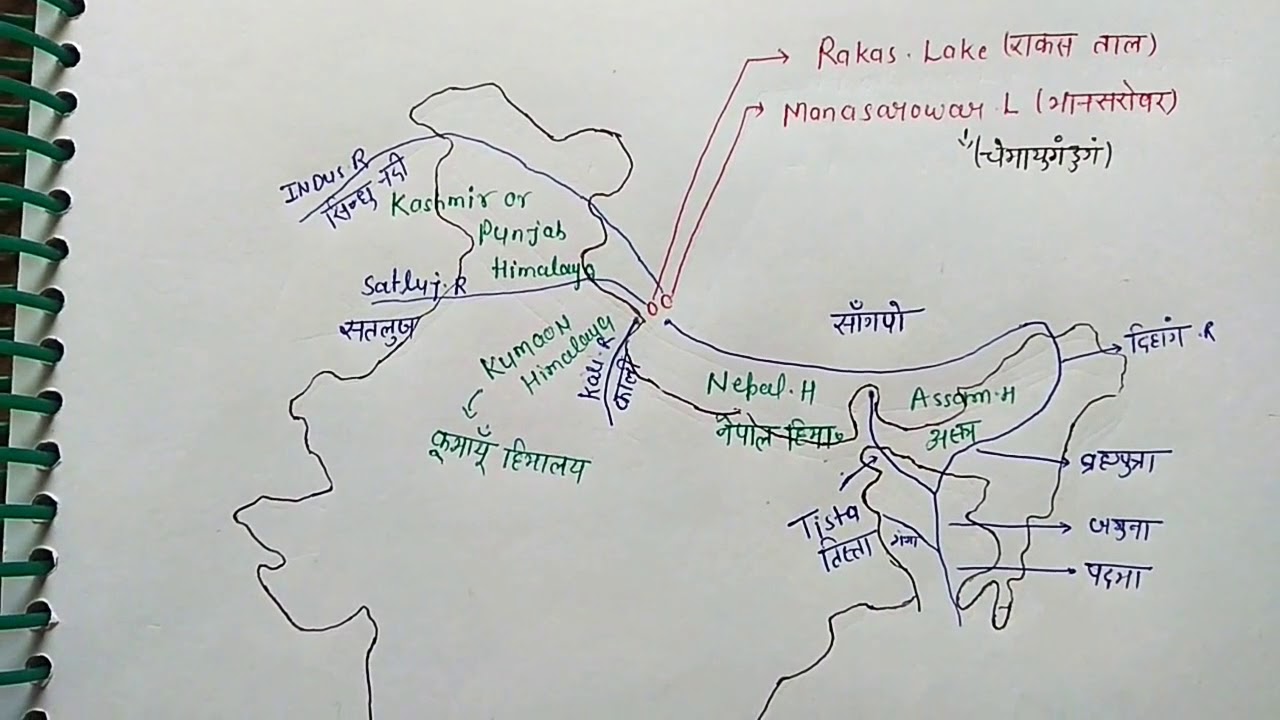 Rakas. Lake (राकस ताल)
Manasarowar. L (मानसरोवर)
(चेमायुगंडुगं)
INDUS. R
सिन्धु नदी
Kashmir or
Punjab
Himalaya
Satluj. R
सतलुज
KUMAON
Himalaya
कूमायूँ हिमालय
Kali. R
काली
साँगपो
दिहांग. R
Nepal. H
नेपाल हिमा०
Assam. H
ब्रह्मपुत्रा
Tista
तिस्ता
गंगा
जमुना
पदमा